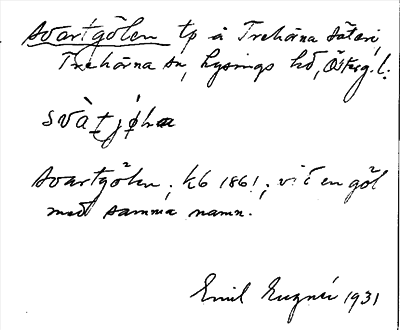 Svartgölen tp å Trehörna säteri,
Trehörna sn, Lysings hd, Östergl.:
svàt̯jø̀l
Svartgölen, kb 1861, vid en göl
med samma namn.
Emil 1931